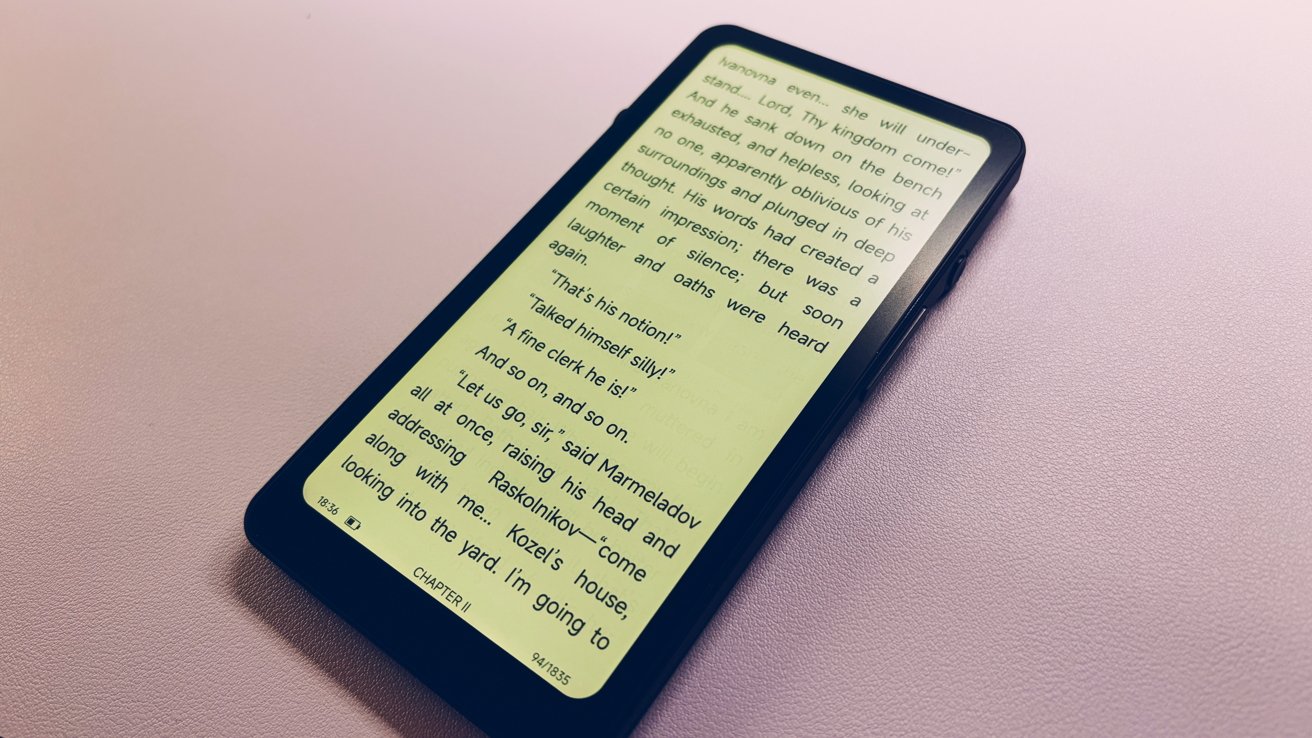 Ivanovna even... she will under-
stand.... Lord, Thy kingdom come!"
And he sank down on the bench
exhausted, and helpless, looking at
no one, apparently oblivious of his
surroundings and plunged in deep
thought. His words had created a
certain impression; there was a
moment of silence; but soon
laughter and oaths were heard
again.
"That's his notion!"
"Talked himself silly!"
"A fine clerk he is!"
And so on, and so on.
"Let us go, sir," said Marmeladov
all at once, raising his head and
addressing Raskolnikov—"come
along with me... Kozel's house,
looking into the yard. I'm going to
18:36
CHAPTER II
94/1835